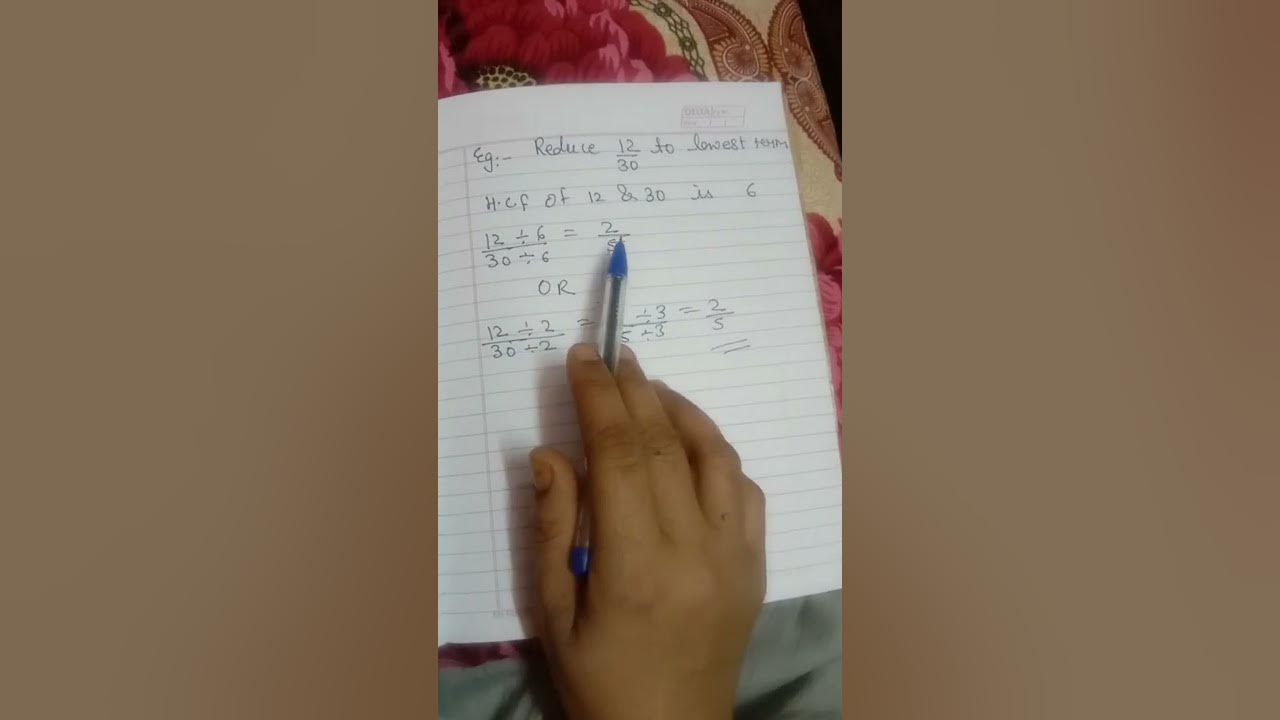 Eg:- Reduce 12/30 to lowest term
H.C.f Of 12 & 30 is 6
12 ÷ 6 / 30 ÷ 6 = 2/5
OR
12 ÷ 2 / 30 ÷ 2 = ÷3 / 5 ÷3 = 2/5